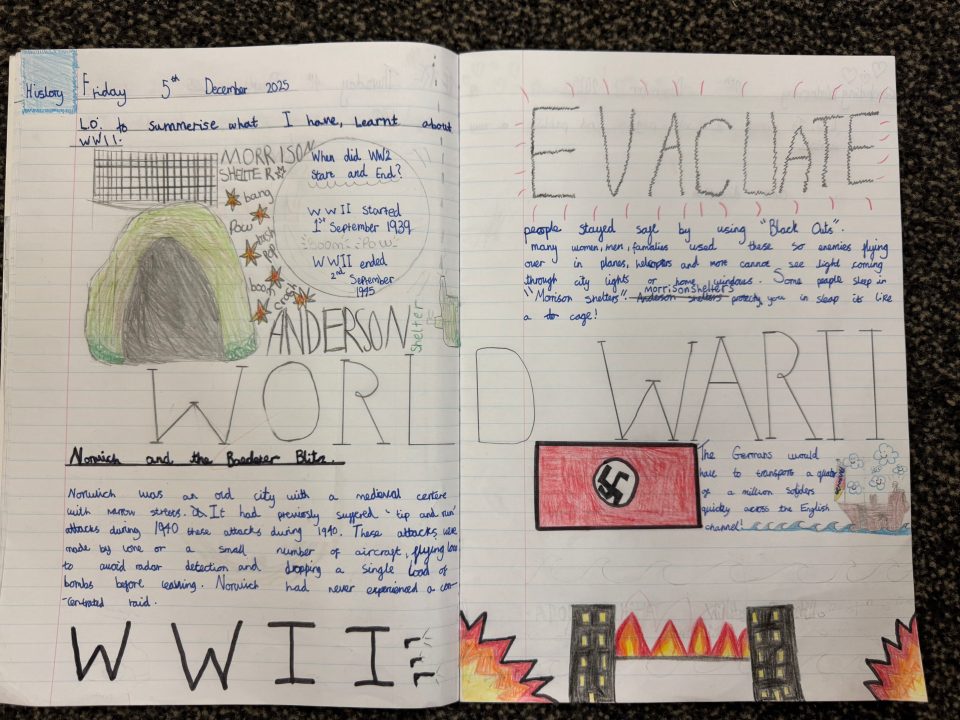 History
Friday 5th December 2025
Lo: to summerise what I have, learnt about
WWII.
MORRISON
SHELTER
bang
Pow
crash
pop
boom
crash
When did WW2
Start and End?
WWII started
1st September 1939.
boom Pow
WWII ended
2nd September
1945
ANDERSON
Shelter
WORLD WAR II
Norwich and the Baedeker Blitz.
Norwich was an old city with a medieval centere
with narrow streets. It had previously suffered "tip and run"
attacks during 1940 these attacks during 1940. These attacks were
made by lone or a small number of aircraft, flying low
to avoid radar detection and dropping a single load of
bombs before leaving. Norwich had never experienced a con-
centrated raid.
WWII
EVACUATE
people stayed safe by using "Black Outs".
many women, men, families used these so enemies flying
over in planes, helicopters and more cannot see light coming
through city lights or home windows. Some people sleep in
"Morrison shelters". Anderson shelters MorrisonShelters protects you in sleep its like
a to cage!
The Germans would
have to transport a quater
of a million soliders
quickly across the English
channel!